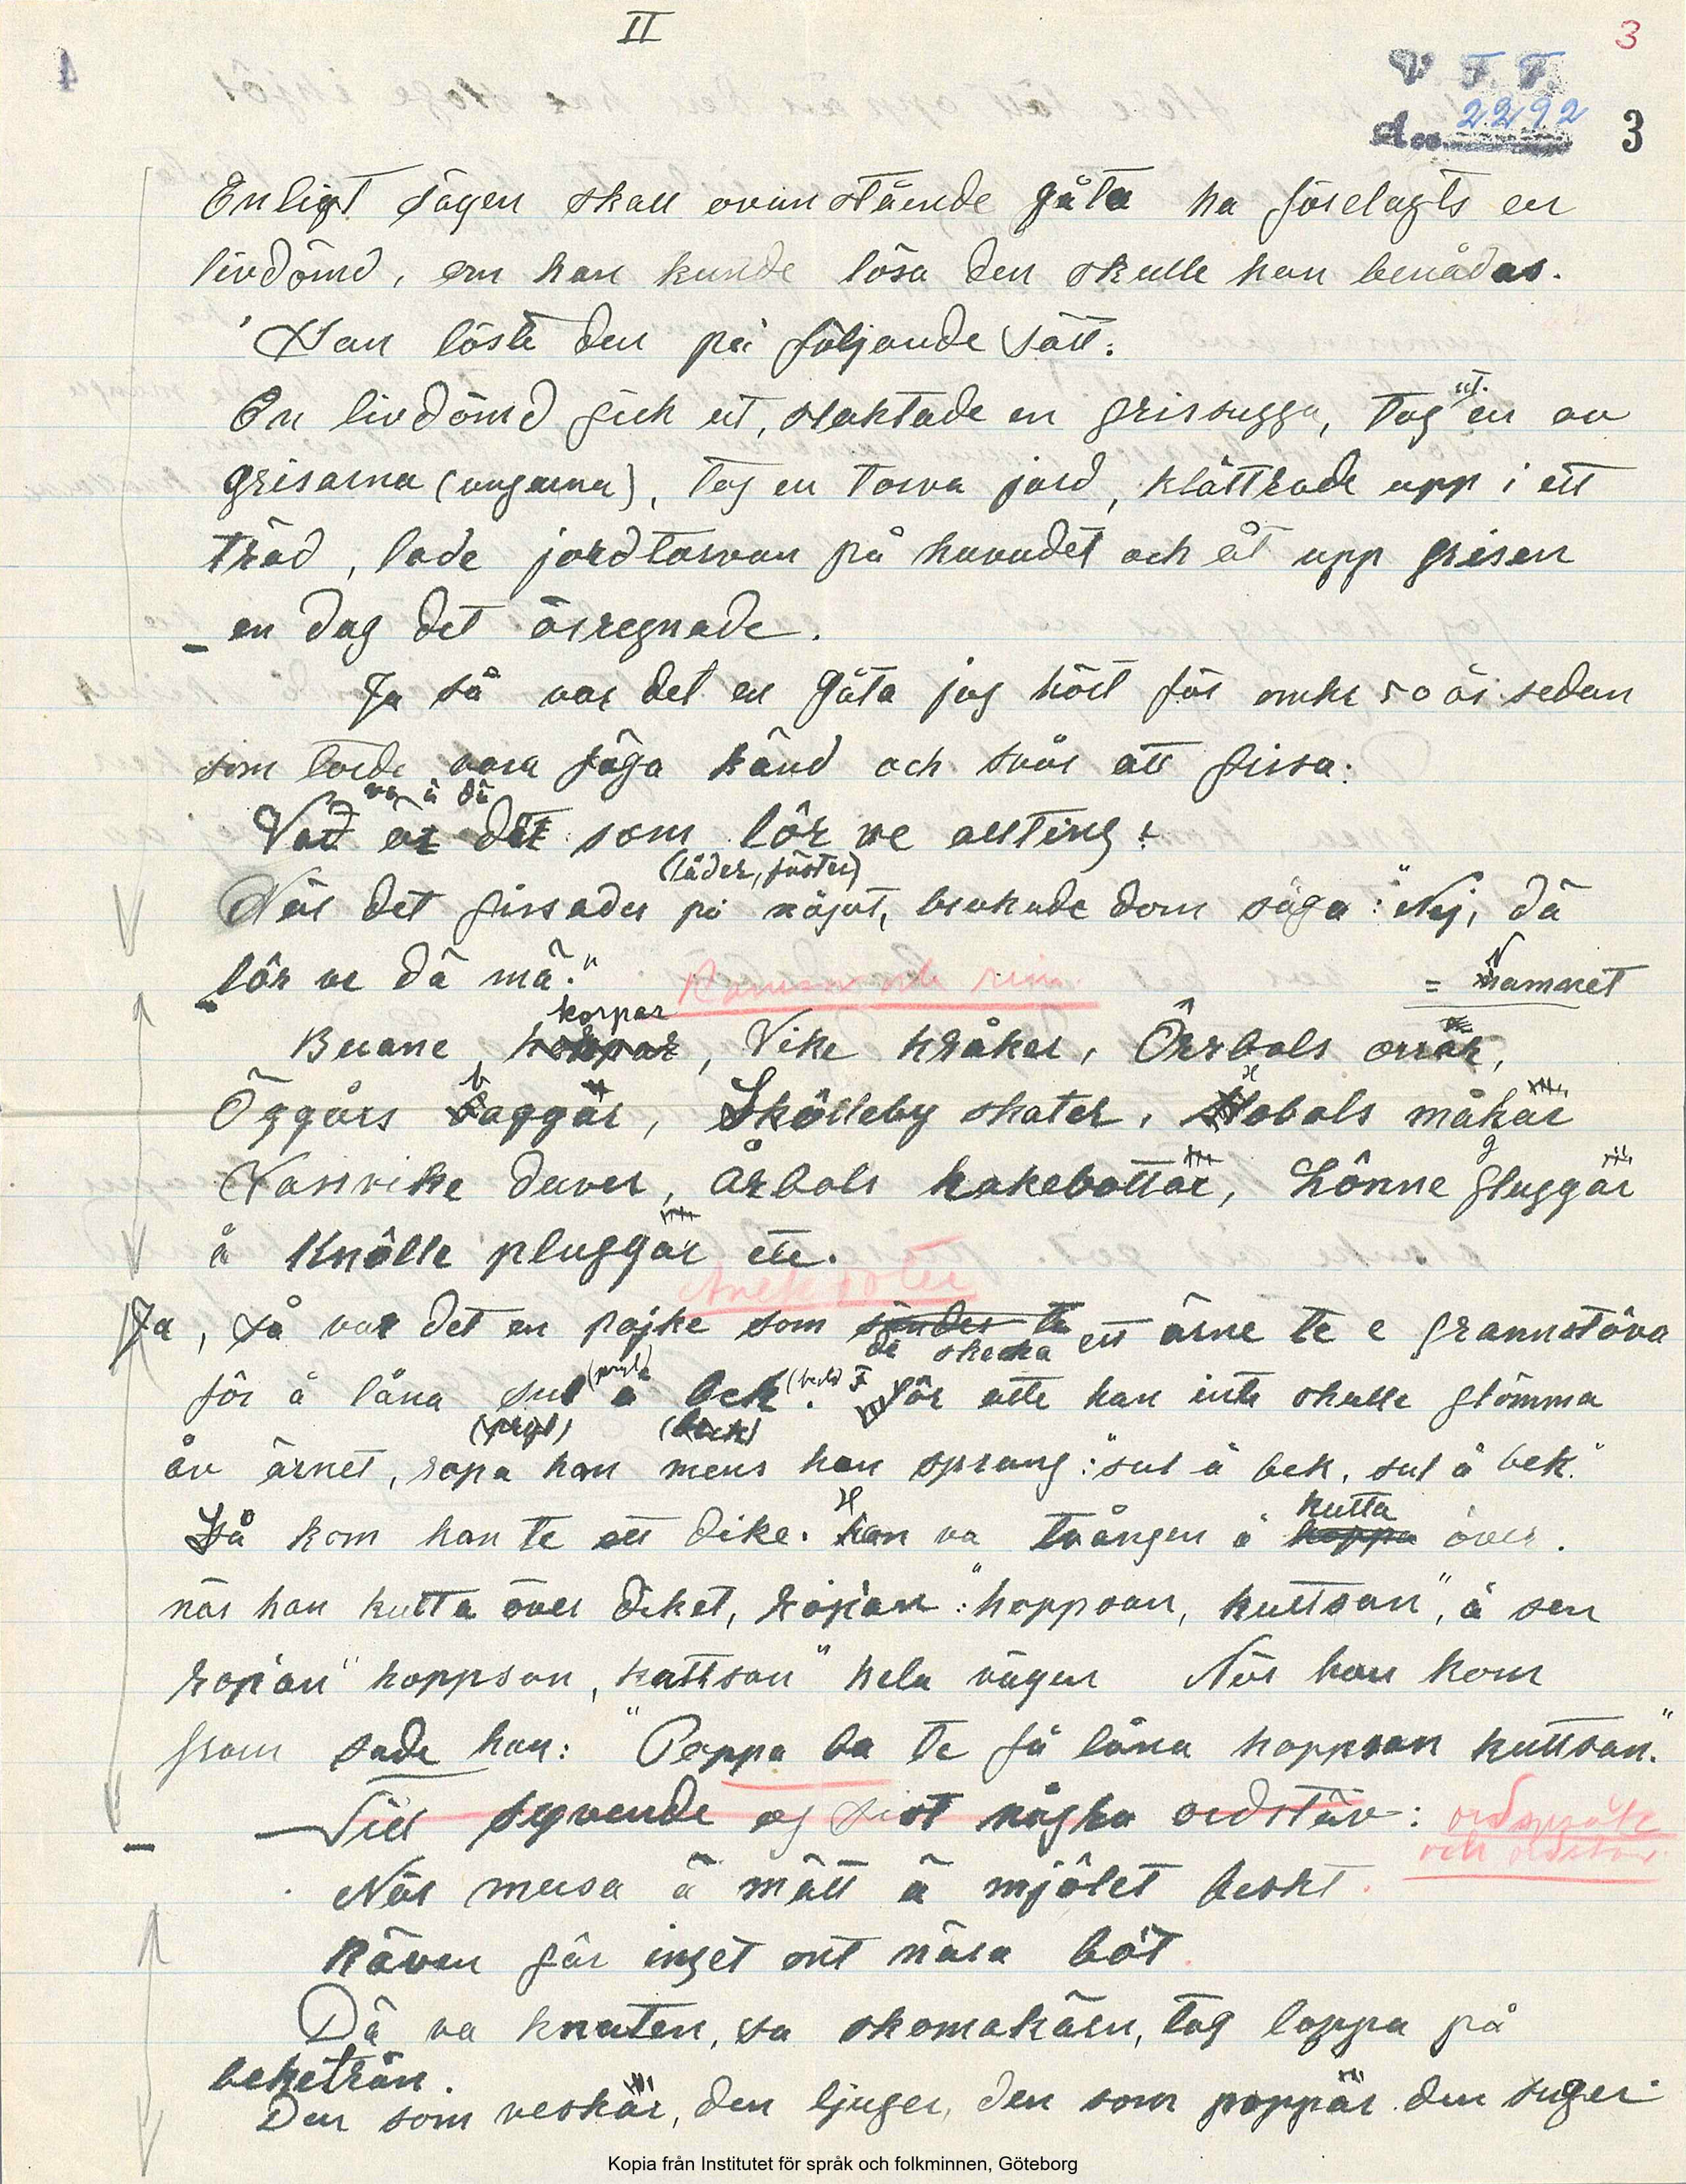 II
3
V. F. F.
4
Acc. 2292
3
Enligt sägen skall ovanstående gåta ha förelagts en
livdömd, om han kunde lösa den skulle han benådas.
Han löste den på följande sätt:
En livdömd gick ut, slaktade en grissugga, tog ut en av
grisarna (ungarna), tog en torva jord, klättrade upp i ett
träd, lade jordtorvan på huvudet och åt upp grisen
en dag det ösregnade.
Ja så var det en gåta jag hört för omkr 50 år sedan
som torde vara föga känd och svår att gissa:
va ä dä
Vad är det som lôr ve allting?
(låder, fäster)
När det gissades på något, brukade dom säga: "Nej, dä
lôr ve dä mä."
Ramsor och rim.
= Namnet
korpar
Buane, korpar, Vike kråker, Ôrrbols orrar,
Öggårs baggär, Skôlleby skater, Hobols måkär
Vassvike duver, Årbols kakebottar, Lônne gluggär
å Knôlle pluggär etc.
Anekdoter
Ja, så var det en pojke som sändes te ett ärne te e grannstôva
de skecka
fôr å låna sul (pryl) å bek (beck). Fôr atte han inte skulle glömma
(pryl) (beck)
åv ärnet, ropa han mens han sprang: "sul å bek, sul å bek."
Så kom han te ett dike. Han va tvången å hoppa över.
kutta
när han kutta över diket, ropa'an: "hoppsan, kuttsan", å sen
ropa'an "hoppsan, kuttsan" hela vägen När han kom
fram sade han: "Pappa ba te få låna hoppsan kuttsan."
Till syvende og sist några ordstäv:
ordspråk
och ordstäv.
När musa ä mätt ä mjôlet beskt.
Räven gör inget ont nära böt
Dä va knuten, sa skomakärn, tog loppa på
beketrån.
Den som veskär, den ljuger, den som poppär den suger.
Kopia från Institutet för språk och folkminnen, Göteborg